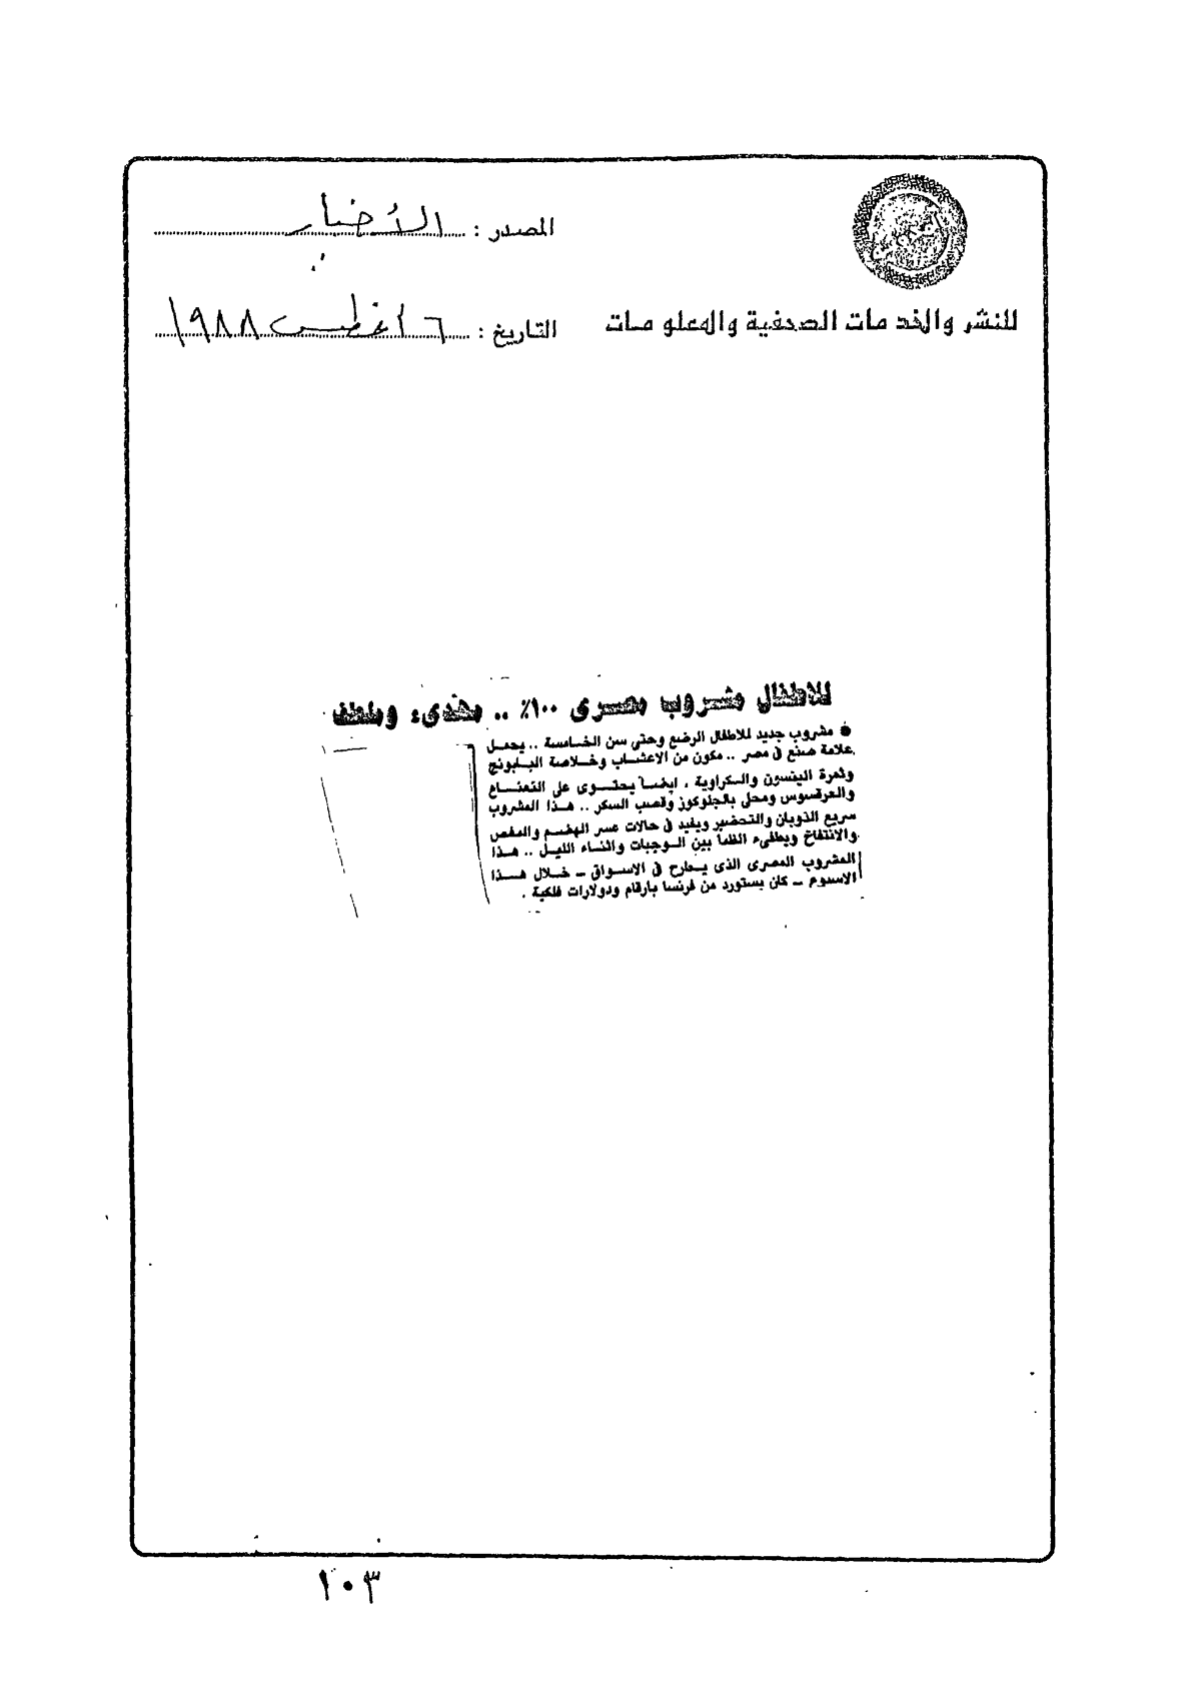 المصدر : الأخبار
للنشر والخدمات الصحفية والمعلومات
التاريخ : ٦ أغطس ١٩٨٨
للاطفال مشروب مصرى ١٠٠٪ .. مهدىء وملطف
● مشروب جديد للاطفال الرضع وحتى سن الخامسة .. يحمل
علامة صنع فى مصر .. مكون من الاعشاب وخلاصة البابونج
وثمرة الينسون والكراوية ، ايضا يحتوى على النعناع
والعرقسوس ومحلى بالجلوكوز وقصب السكر .. هذا المشروب
سريع الذوبان والتحضير ويفيد فى حالات عسر الهضم والمغص
والانتفاخ ويطفىء الظمأ بين الوجبات واثناء الليل .. هذا
المشروب المصرى الذى يطرح فى الاسواق - خلال هذا
الاسبوع - كان يستورد من فرنسا بارقام ودولارات فلكية .
١٠٣